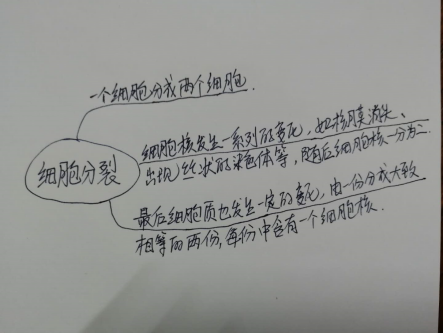 一个细胞分成两个细胞.
细胞核发生一系列的变化，如核膜消失、
出现丝状的染色体等，随后细胞核一分为二.
细胞分裂
最后细胞质也发生一定的变化，由一份分成大致
相等的两份，每份中含有一个细胞核.